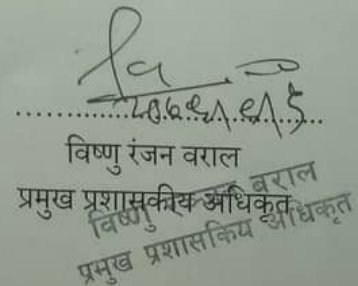 विष्णु रंजन वराल
प्रमुख प्रशासकीय अधिकृत
विष्णु बराल
प्रमुख प्रशासकिय अधिकृत